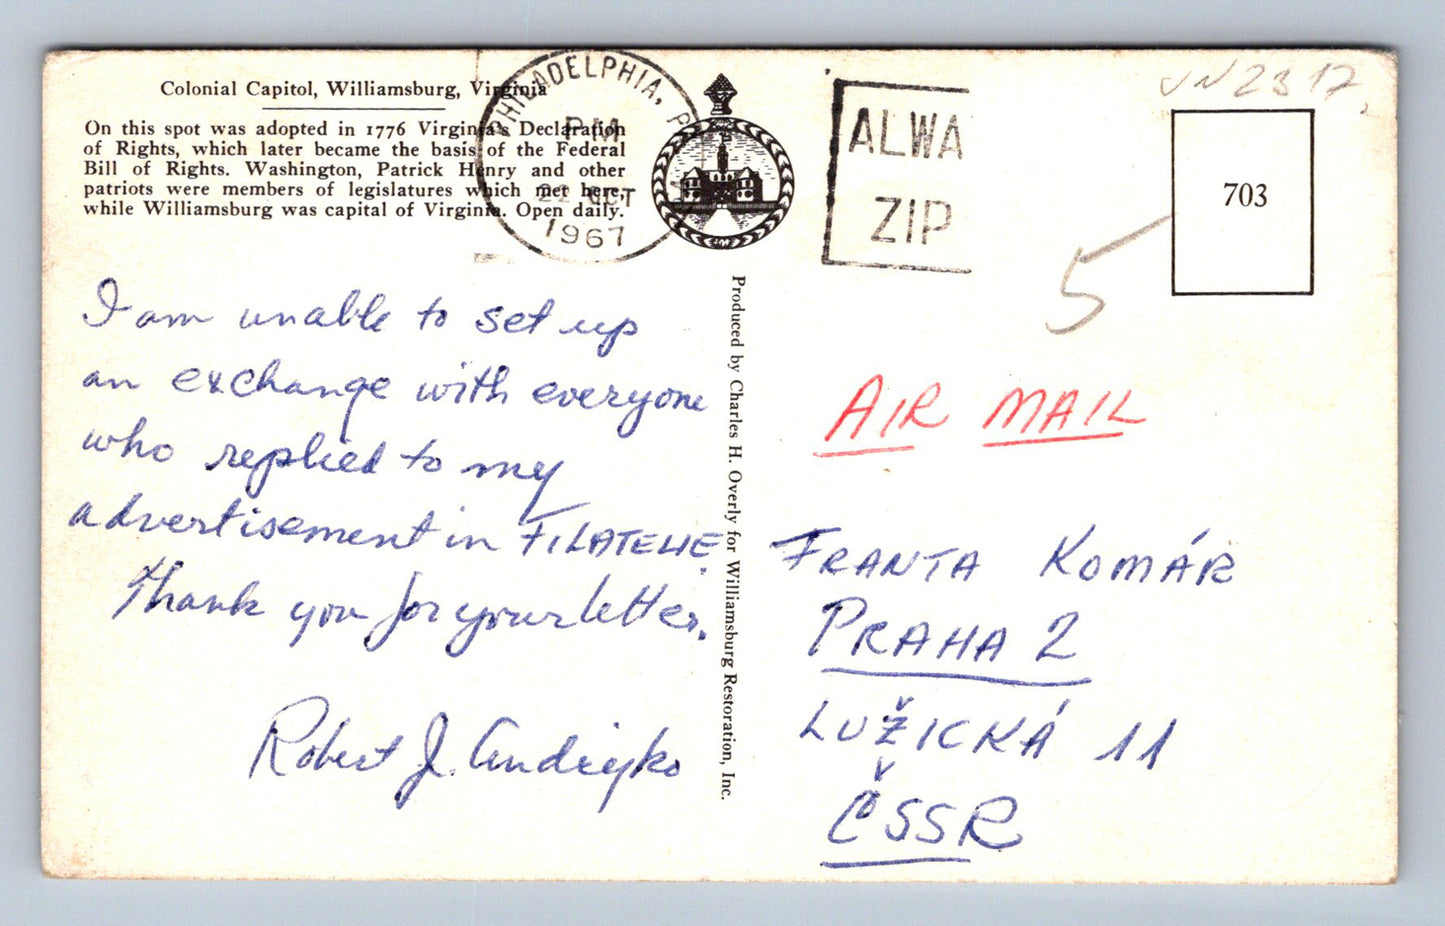 Colonial Capitol, Williamsburg, Virginia
On this spot was adopted in 1776 Virginia's Declaration
of Rights, which later became the basis of the Federal
Bill of Rights. Washington, Patrick Henry and other
patriots were members of legislatures which met here,
while Williamsburg was capital of Virginia. Open daily.
PHILADELPHIA, PA
PM
OCT
1967
ALWA
ZIP
703
5
I am unable to set up
an exchange with everyone
who replied to my
advertisement in FILATELIE.
Thank you for your letter.
Robert J. Andrejko
Produced by Charles H. Overly for Williamsburg Restoration, Inc.
AIR MAIL
FRANTA KOMÁR
PRAHA 2
LUŽICKÁ 11
ČSSR